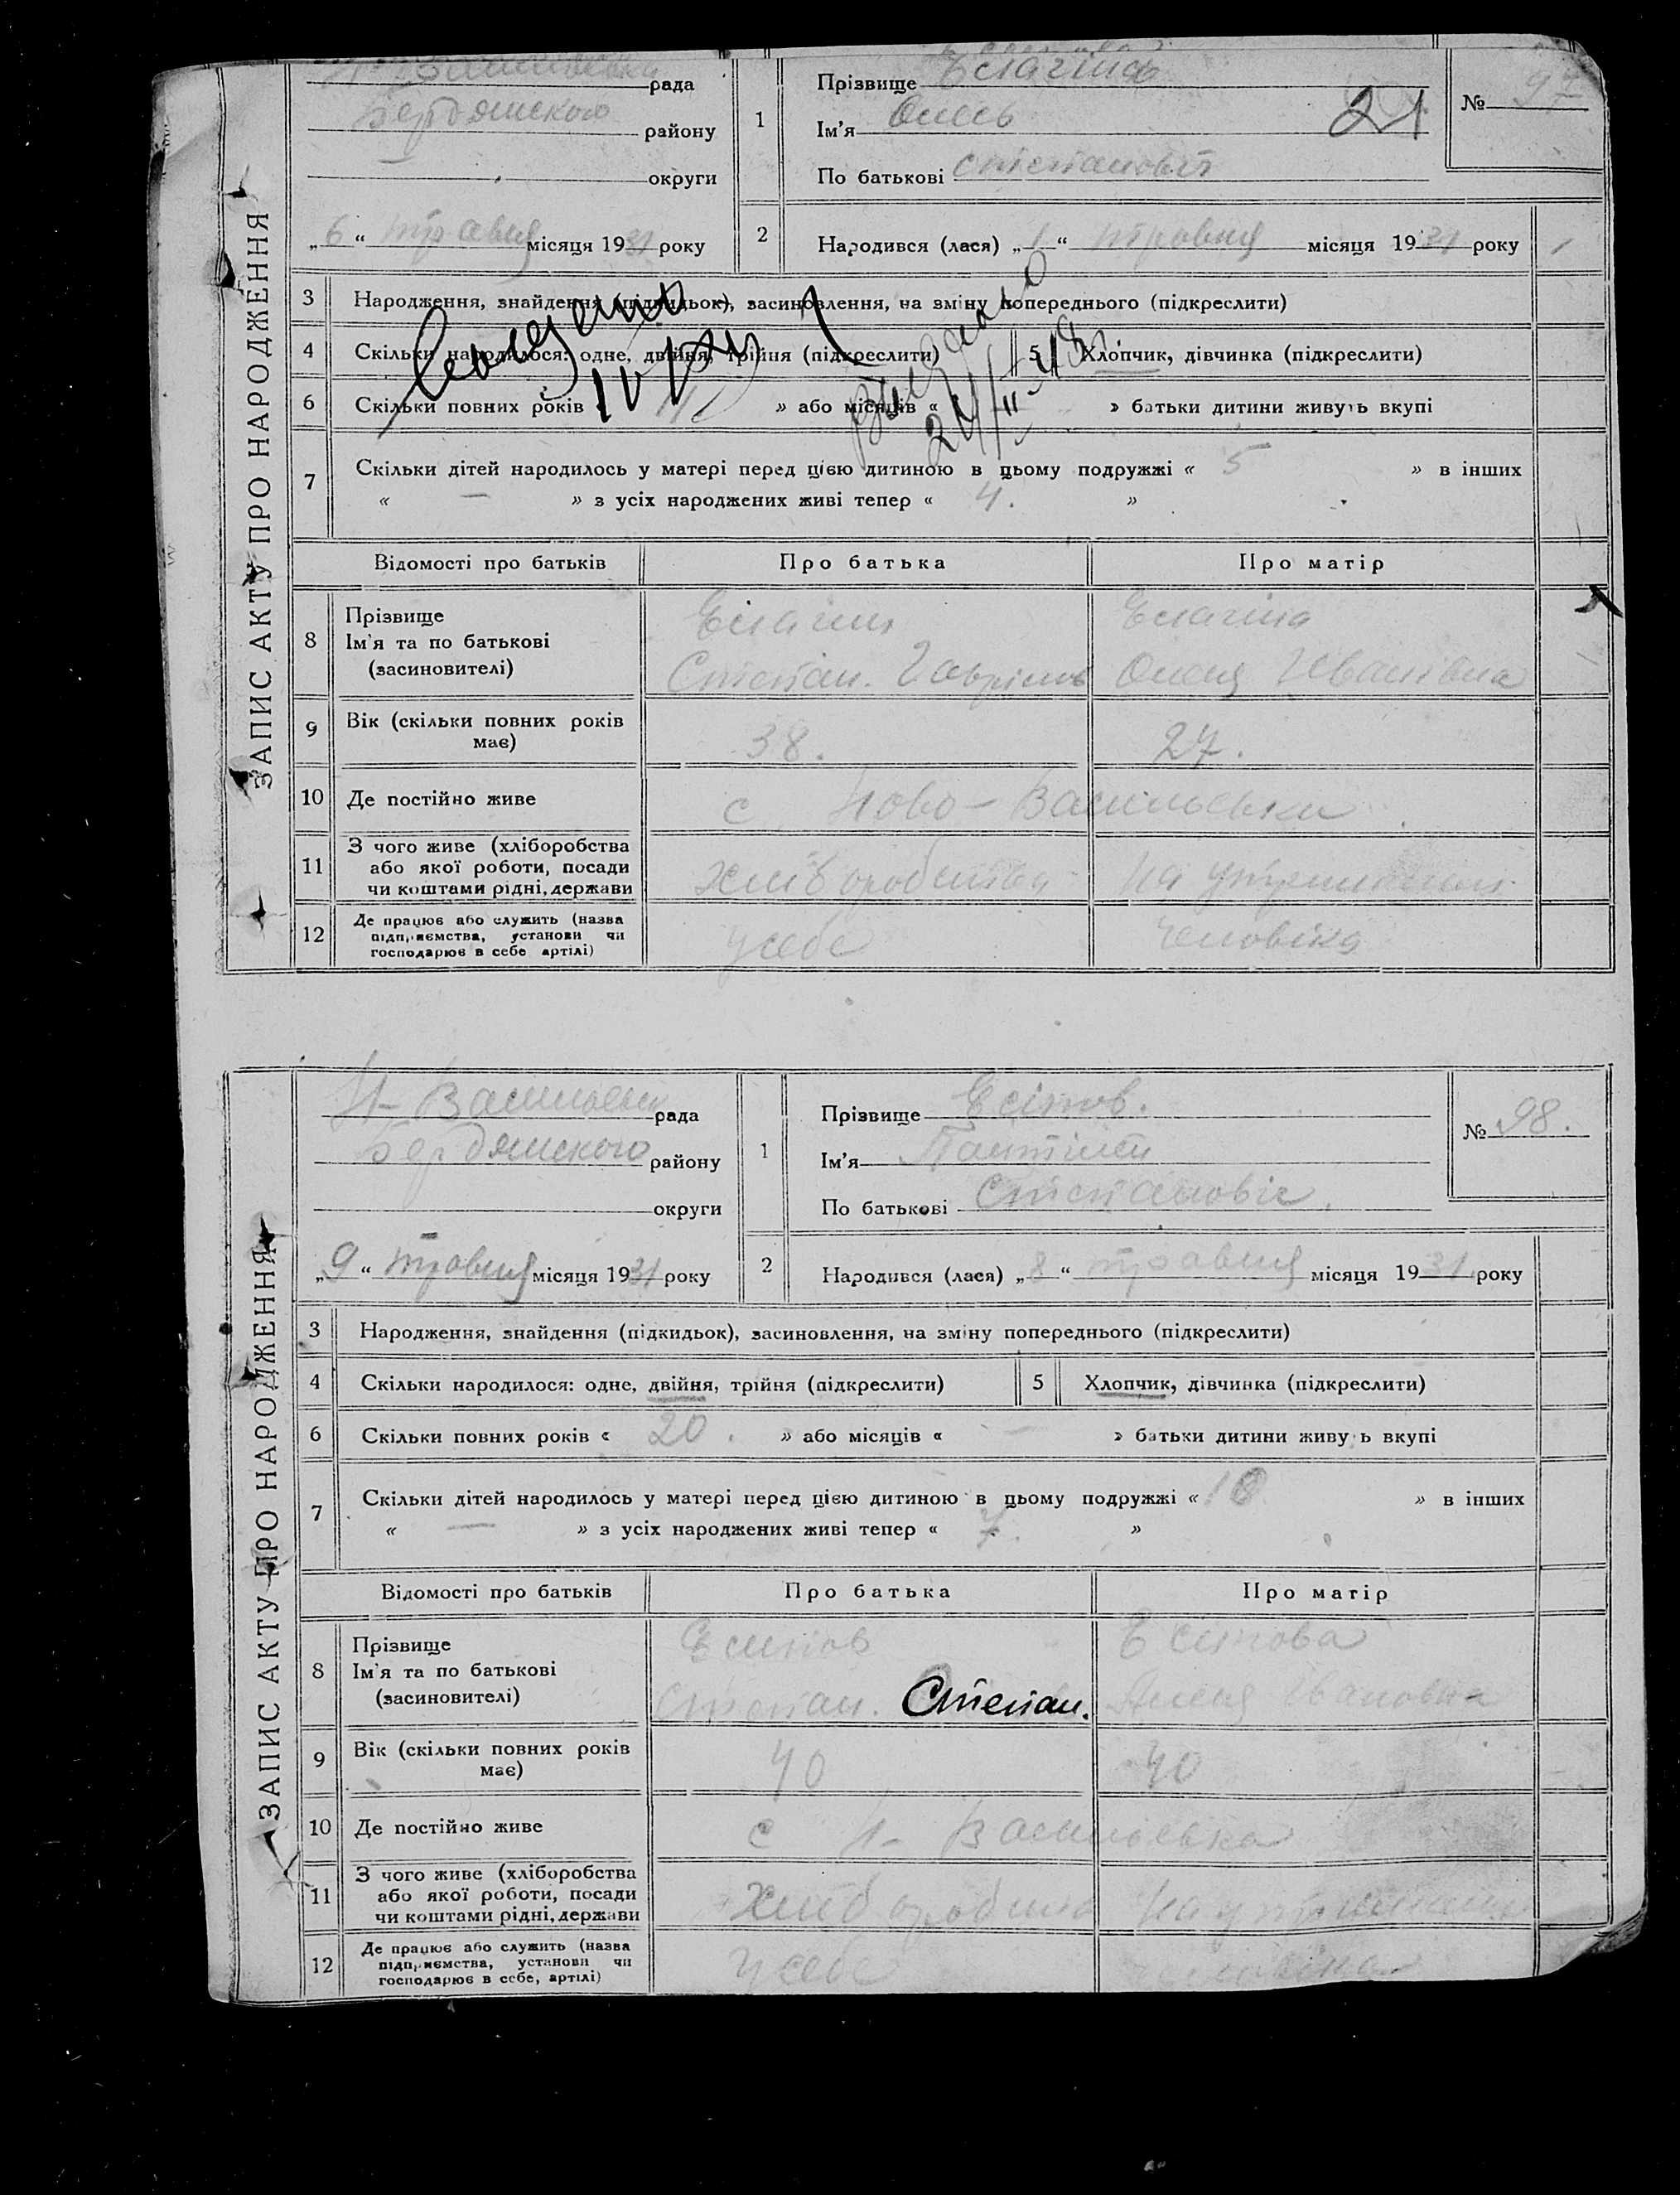 ЗАПИС АКТУ ПРО НАРОДЖЕННЯ
рада
Бердянского району
округи
„6“ травня місяця 1931 року
1
Прізвище
Ім'я Олесь
По батькові Степановіч
21
№ 97
2
Народився (лася) „1“ травня місяця 1931 року
3 Народження, знайдення (підкидьок), засиновлення, на зміну попереднього (підкреслити)
4 Скільки народилося: одне, двійня, трійня (підкреслити)
5 Хлопчик, дівчинка (підкреслити)
6 Скільки повних років « » або місяців « » батьки дитини живуть вкупі
7 Скільки дітей народилось у матері перед цією дитиною в цьому подружжі « 5 » в інших
« — » з усіх народжених живі тепер « 4. »
Відомості про батьків Про батька Про матір
8 Прізвище
Ім'я та по батькові
(засиновителі)
Єлагин Єлагіна
Степан. Гаврілов Олена Іванівна
9 Вік (скільки повних років має) 38. 27.
10 Де постійно живе с. Ново-Васильевка
11 З чого живе (хліборобства
або якої роботи, посади
чи коштами рідні, держави
Хліборобство На утриманні
12 Де працює або служить (назва
підприємства, установи чи
господарює в себе артілі)
у себе чоловіка
ЗАПИС АКТУ ПРО НАРОДЖЕННЯ
Н-Васильевк рада
Бердянского району
округи
„9“ травня місяця 1931 року
1
Прізвище Єсіпов.
Ім'я
По батькові Степановіч.
№ 98.
2
Народився (лася) „8“ травня місяця 1931 року
3 Народження, знайдення (підкидьок), засиновлення, на зміну попереднього (підкреслити)
4 Скільки народилося: одне, двійня, трійня (підкреслити)
5 Хлопчик, дівчинка (підкреслити)
6 Скільки повних років « 20. » або місяців « — » батьки дитини живуть вкупі
7 Скільки дітей народилось у матері перед цією дитиною в цьому подружжі « 10 » в інших
« — » з усіх народжених живі тепер « 7. »
Відомості про батьків Про батька Про матір
8 Прізвище
Ім'я та по батькові
(засиновителі)
Єсипов Єсипова
Степан. Степан. Івановна
9 Вік (скільки повних років має) 40 40
10 Де постійно живе с Н-Васильевка
11 З чого живе (хліборобства
або якої роботи, посади
чи коштами рідні, держави
Хліборобство На утриманні
12 Де працює або служить (назва
підприємства, установи чи
господарює в себе, артілі)
у себе